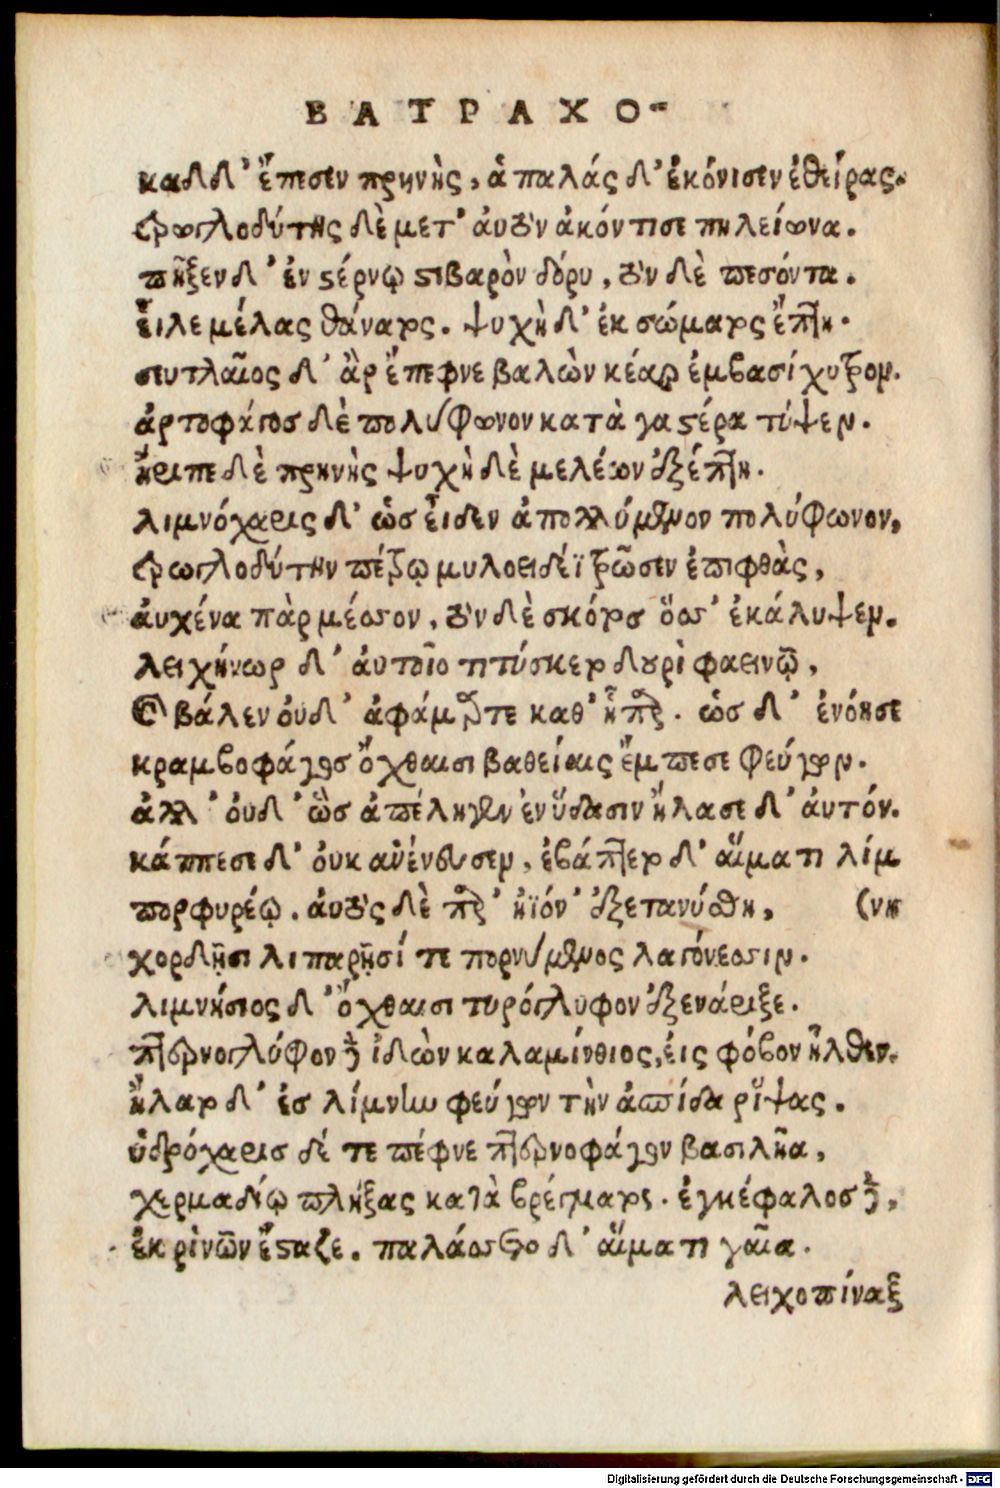 ΒΑΤΡΑΧΟ-
καδδ' ἔπεσεν πρηνὴς, ἁπαλάς δ' ἐκόνισεν ἐθείρας.
Τρωγλοδύτης δὲ μετ' ἀυτὸν ἀκόντισε πηλείωνα.
πῆξεν δ' ἐν στέρνῳ στιβαρὸν δόρυ, τὸν δὲ πεσόντα.
εἷλε μέλας θάνατος. ψυχὴ δ' ἐκ σώματος ἔπτη.
σευτλαῖος δ' ἂρ ἔπεφνε βαλὼν κέαρ ἐμβασίχυτρον.
ἀρτοφάγοσ δὲ πολύφωνον κατὰ γαστέρα τύψεν.
ἤριπε δὲ πρηνὴς ψυχὴ δὲ μελέων ἐξέπτη.
λιμνόχαρις δ' ὡσ εἶδεν ἀπολλύμενον πολύφωνον,
Τρωγλοδύτην πέτρῳ μυλοειδέϊ τρῶσεν ἐπιφθὰς,
ἀυχένα πὰρ μέσσον, τὸν δὲ σκότοσ ὄσσ' ἐκάλυψεν.
λειχήνωρ δ' ἀυτοῖο τιτύσκετο δουρὶ φαεινῷ,
καὶ βάλεν ὀυδ' ἀφάμαρτε καθ' ἧπαρ. ὡσ δ' ἐνόησε
κραμβοφάγοσ ὄχθαισι βαθείαις ἔμπεσε φεύγων.
ἀλλ' ὀυδ' ὣσ ἀπέληγεν ἐν ὕδασιν ἤλασε δ' ἀυτόν.
κάππεσε δ' ὀυκ ἀνένευσεν, ἐβάπτετο δ' αἵματι λίμ
πορφυρέῳ. ἀυτὸς δὲ παρ' ἠϊόν' ἐξετανύσθη, (νη
χορδῇσι λιπαρῇσί τε πορνύμενος λαγόνεσσιν.
λιμνήσιος δ' ὄχθαισι τυρόγλυφον ἐξενάριξε.
πτερνογλύφον δὲ ἰδὼν καλαμίνθιος, ἐις φόβον ἦλθεν.
ἥλατο δ' ἐσ λίμνην φεύγων τὴν ἀσπίδα ρίψας.
ὑδρόχαρισ δέ τε πέφνε πτερνοφάγον βασιλῆα,
χερμαδίῳ πλήξας κατὰ βρέγματος. ἐγκέφαλοσ δὲ,
ἐκ ρὶνῶν ἔσταζε. παλάσσετο δ' αἵματι γαῖα.
λειχοπίναξ
Digitalisierung gefördert durch die Deutsche Forschungsgemeinschaft - DFG